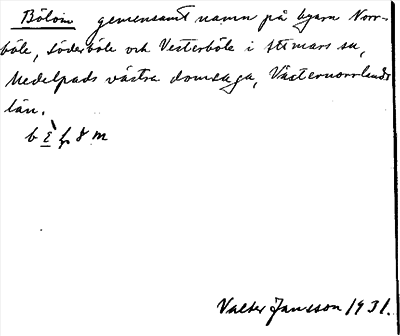 Bölom gemensamt namn på byarna Norr-
böle, Söderböle och Västerböle i Attmars sn,
Medelpads västra domsaga, Västernorrlands
län.
Valter Jansson 1931.